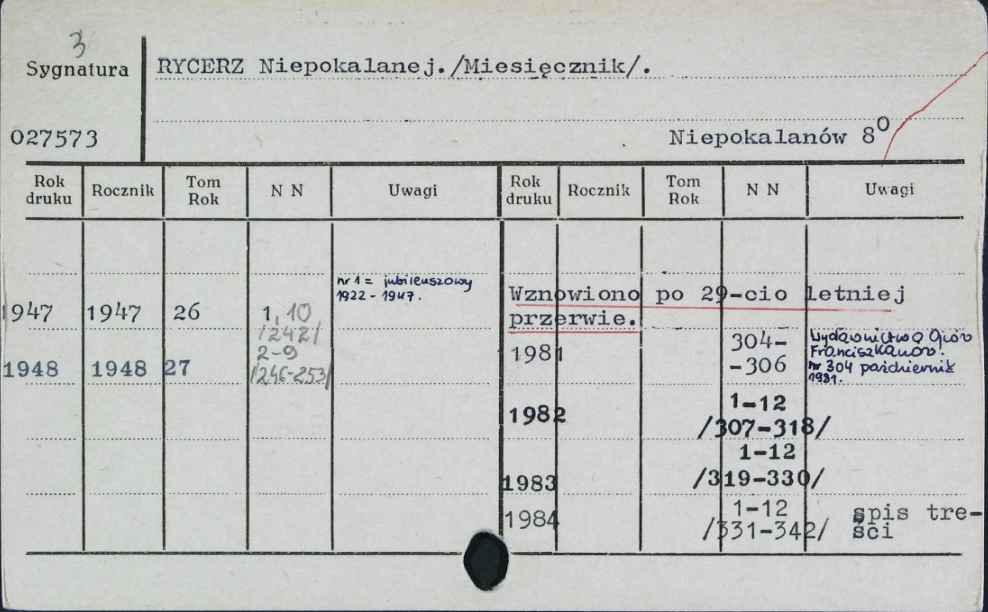 3
Sygnatura
RYCERZ Niepokalanej./Miesięcznik/.
027573
Niepokalanów 8⁰
Rok druku Rocznik Tom Rok N N Uwagi Rok druku Rocznik Tom Rok N N Uwagi
nr 1 = jubileuszowy
1922 - 1947.
1947 1947 26 1, 10
/242/
1948 1948 27 2-9
/246-253/
Wznowiono po 29-cio letniej
przerwie.
1981 304-
-306
Wydawnictwo Ojców
Franciszkanów.
nr 304 październik
1981.
1982 1-12
/307-318/
1-12
1983 /319-330/
1984 1-12
/331-342/
spis tre-
ści